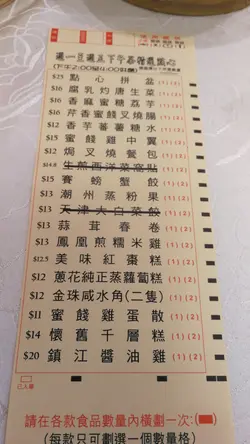 週一至週五下午茶精選點心
(下午2:00至4:00供應)
$25 點心拼盆 (1) (2)
$16 腐乳灼唐生菜 (1) (2)
$16 香麻蜜糖荔芋 (1) (2)
$16 芹香蜜餞叉燒腸 (1) (2)
$12 香芋蕃薯糖水 (1) (2)
$15 蜜餞雞中翼 (1) (2)
$12 焗叉燒餐包 (1) (2)
$14.8 生煎西洋菜窩貼 (1) (2)
$15 賽螃蟹餃 (1) (2)
$13 潮州蒸粉果 (1) (2)
$13 天津大白菜餃 (1) (2)
$13 蒜茸春卷 (1) (2)
$13 鳳凰煎糯米雞 (1) (2)
$12.5 美味紅棗糕 (1) (2)
$12 蔥花純正蒸蘿蔔糕 (1) (2)
$12 金珠咸水角(二隻) (1) (2)
$11 蜜餞雞蛋散 (1) (2)
$14 懷舊千層糕 (1) (2)
$20 鎮江醬油雞 (1) (2)
已入單
請在各款食品數量內橫劃一次:
(每款只可劃選一個數量格)